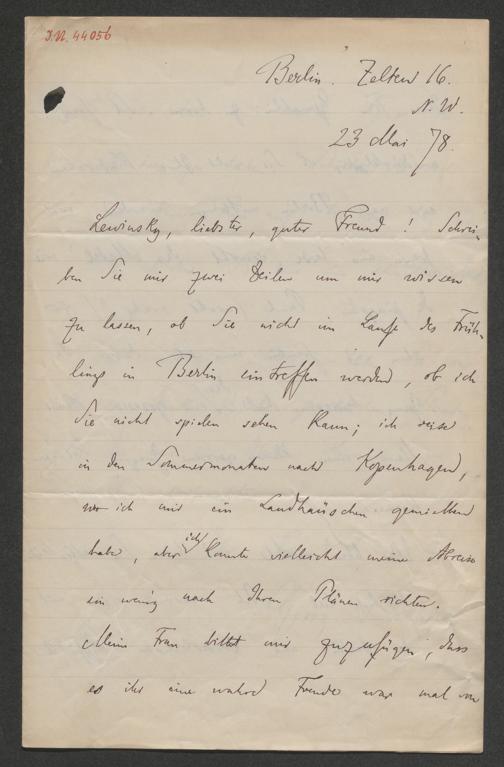 J.N. 44056
Berlin. Zelten 16.
N.W.
23 Mai 78.
Lewinsky, liebster, guter Freund! Schrei-
ben Sie mir zwei Zeilen um mir wissen
zu lassen, ob Sie nicht im Laufe des Früh-
lings in Berlin eintreffen werden, ob ich
Sie nicht spielen sehen kann; ich reise
in den Sommermonaten nach Kopenhagen,
wo ich mir ein Landhäuschen gemiethet
habe, aber ich könnte vielleicht meine Abreise
ein wenig nach Ihren Plänen richten.
Meine Frau bittet mir zuzufügen, dass
es ihr eine wahre Freude war mal von